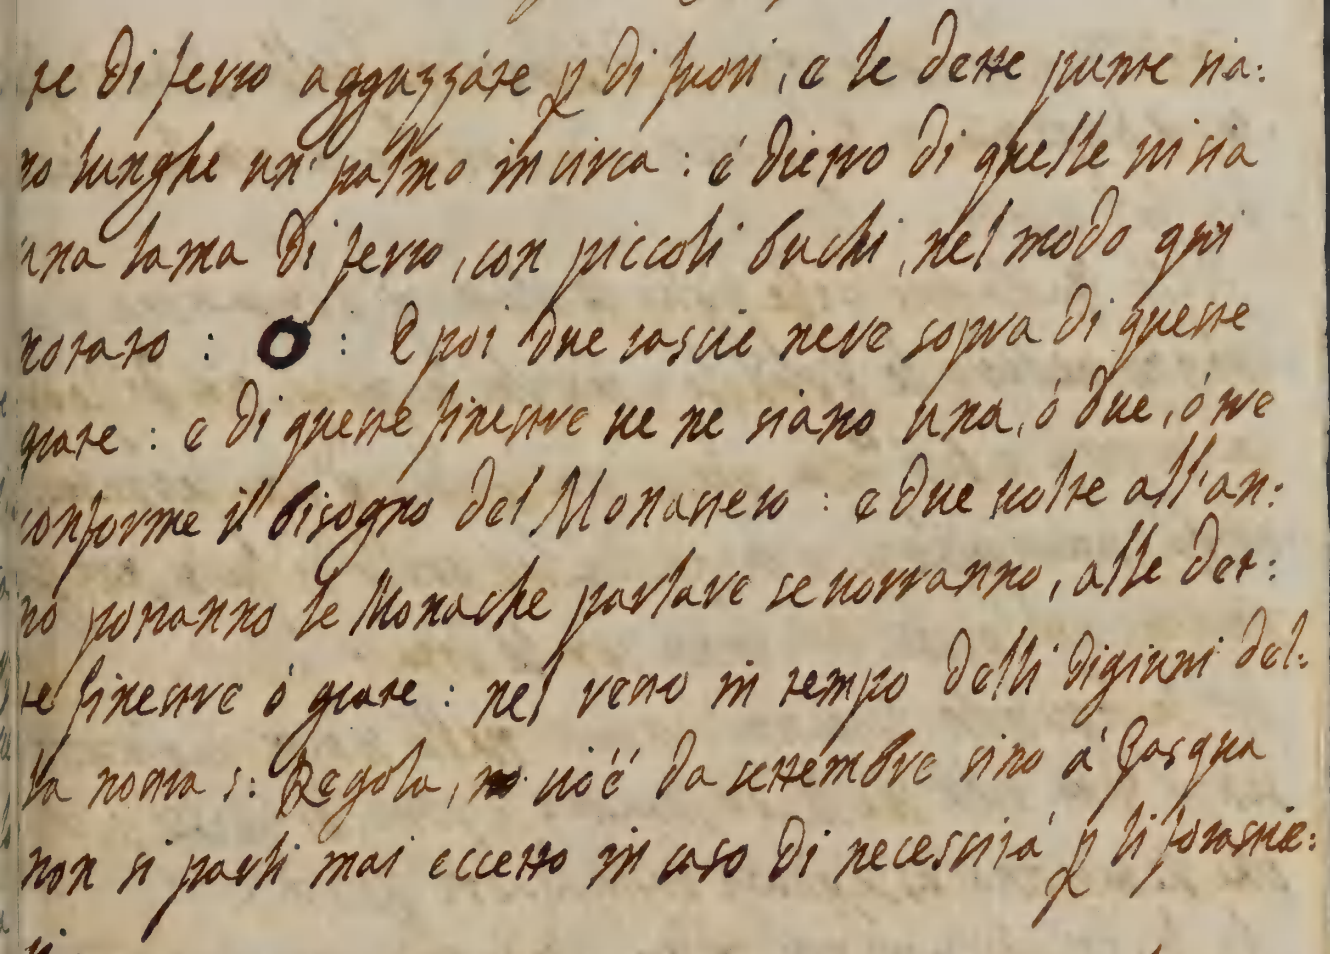 te di ferro agguzzate p di fuori, e le dette punte sia:
no lunghe un' palmo in circa: é dietro di quelle vi sia
una lama di ferro, con piccoli buchi, nel modo qui
notato: O: E poi due cascie nere sopra di queste
grate: e di queste finestre ve ne siano una, ó due, ó tre
conforme il bisogno del Monastero: e due volte all'an:
no potranno le Monache parlare se vorranno, alle det:
te finestre ó grate: nel resto in tempo delli digiuni del:
la nostra s: Regola, ció é da settembre sino á Pasqua
non si parli mai eccetto in caso di necessitá p li forastie:
ri